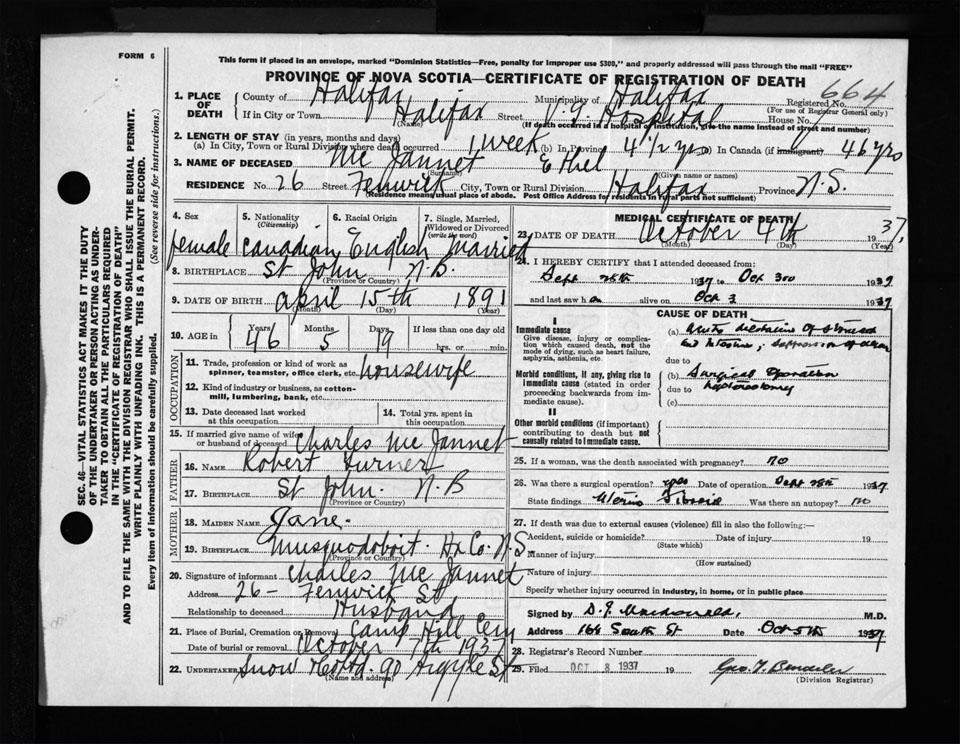 FORM 6
This form if placed in an envelope, marked "Dominion Statistics—Free, penalty for improper use $300," and properly addressed will pass through the mail "FREE"
PROVINCE OF NOVA SCOTIA—CERTIFICATE OF REGISTRATION OF DEATH
664
1. PLACE OF DEATH County of Halifax Municipality of Halifax Registered No.
(For use of Registrar General only)
If in City or Town Halifax Street V. G. Hospital House No.
(Name) (If death occurred in a hospital or institution, give the name instead of street and number)
2. LENGTH OF STAY (in years, months and days)
(a) In City, Town or Rural Division where death occurred 1 week (b) In Province 4 1/2 yrs (c) In Canada (if immigrant) 46 yrs
3. NAME OF DECEASED Mc Jannet Ethel
(Surname) (Given name or names)
RESIDENCE No. 26 Street Fenwick City, Town or Rural Division Halifax Province N.S.
(Residence means usual place of abode. Post Office Address for residents in rural parts not sufficient)
4. Sex 5. Nationality (Citizenship) 6. Racial Origin 7. Single, Married, Widowed or Divorced (write the word)
female Canadian English married
8. BIRTHPLACE St John N.B.
(Province or Country)
9. DATE OF BIRTH April 15th 1891
(Month) (Day) (Year)
10. AGE in Years Months Days If less than one day old
46 5 19 hrs. or min.
OCCUPATION
11. Trade, profession or kind of work as spinner, teamster, office clerk, etc. housewife
12. Kind of industry or business, as cotton-mill, lumbering, bank, etc.
13. Date deceased last worked at this occupation
14. Total yrs. spent in this occupation
15. If married give name of wife or husband of deceased Charles Mc Jannet
FATHER
16. NAME Robert Turner
17. BIRTHPLACE St John. N.B
MOTHER
18. MAIDEN NAME Jane.
19. BIRTHPLACE Musquodoboit. Hx Co. N.S
(Province or Country)
20. Signature of informant Charles Mc Jannet
Address 26 - Fenwick St
Relationship to deceased Husband
21. Place of Burial, Cremation or Removal Camp Hill Cem
Date of burial or removal October 7th 1937
22. UNDERTAKER Snow & Co Ltd. 90 Argyle St
(Name and address)
MEDICAL CERTIFICATE OF DEATH
23. DATE OF DEATH October 4th 1937,
(Month) (Day) (Year)
24. I HEREBY CERTIFY that I attended deceased from:
Sept 28th 1937 to Oct 3rd 1937
and last saw h er alive on Oct 3 1937
CAUSE OF DEATH
I
Immediate cause
Give disease, injury or complication which caused death, not the mode of dying, such as heart failure, asphyxia, asthenia, etc.
(a) Acute dilatation of stomach
and intestine; suppression of urine
due to
Morbid conditions, if any, giving rise to immediate cause (stated in order proceeding backwards from immediate cause).
(b) Surgical operation
due to hysterectomy
(c)
II
Other morbid conditions (if important) contributing to death but not causally related to immediate cause.
25. If a woman, was the death associated with pregnancy? no
26. Was there a surgical operation? yes Date of operation Sept 28th 1937
State findings Uterine Fibroid Was there an autopsy? no
27. If death was due to external causes (violence) fill in also the following:—
Accident, suicide or homicide? Date of injury 19
(State which)
Manner of injury
(How sustained)
Nature of injury
Specify whether injury occurred in Industry, in home, or in public place
Signed by D. J. Macdonald, M.D.
Address 164 South St Date Oct 5th 1937
28. Registrar's Record Number
29. Filed OCT 8 1937 19
(Division Registrar)
SEC. 46—VITAL STATISTICS ACT MAKES IT THE DUTY OF THE UNDERTAKER OR PERSON ACTING AS UNDERTAKER TO OBTAIN ALL THE PARTICULARS REQUIRED IN THE "CERTIFICATE OF REGISTRATION OF DEATH" AND TO FILE THE SAME WITH THE DIVISION REGISTRAR WHO SHALL ISSUE THE BURIAL PERMIT.
WRITE PLAINLY WITH UNFADING INK. THIS IS A PERMANENT RECORD.
Every item of information should be carefully supplied. (See reverse side for instructions.)